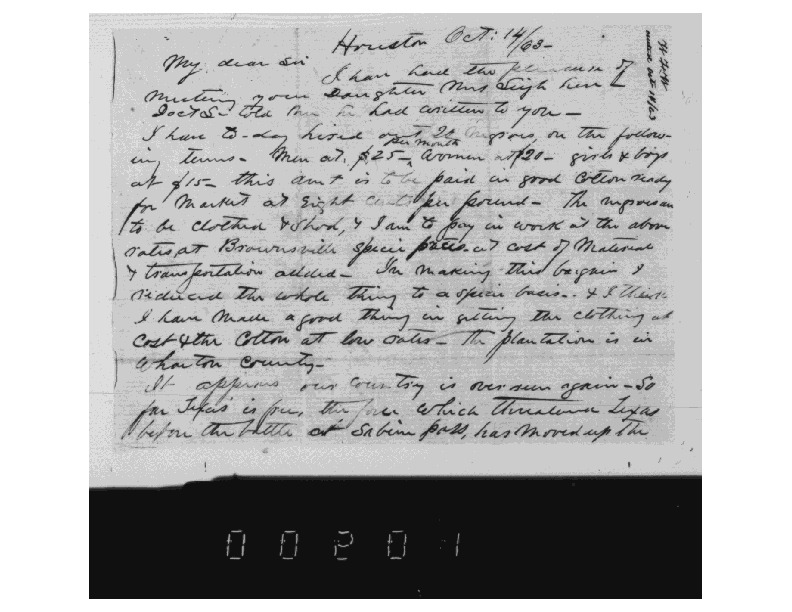 Houston Oct: 14/63-
My dear Sir
I have had the pleasure of
meeting your Daughter Mrs Leigh here -
Doct S- told me he had written to you -
I have to-day hired out 20 negroes, on the follow-
ing terms - Men at $25 - per month Women at $20 - girls & boys
at $15 - this amt is to be paid in good Cotton ready
for Market at Eight Cents per pound - The negroes are
to be clothed & shod, & I am to pay in work at the above
rates, at Brownsville specie prices - at cost of Material
& transportation added - In making this bargain I
reduced the whole thing to a specie basis - & I think
I have made a good thing in getting the clothing at
cost & the Cotton at low rates - The plantation is in
Wharton County -
It appears our country is over run again - So
far Texas is free, the force which threatened Texas
before the battle at Sabine pass, has moved up the
00201